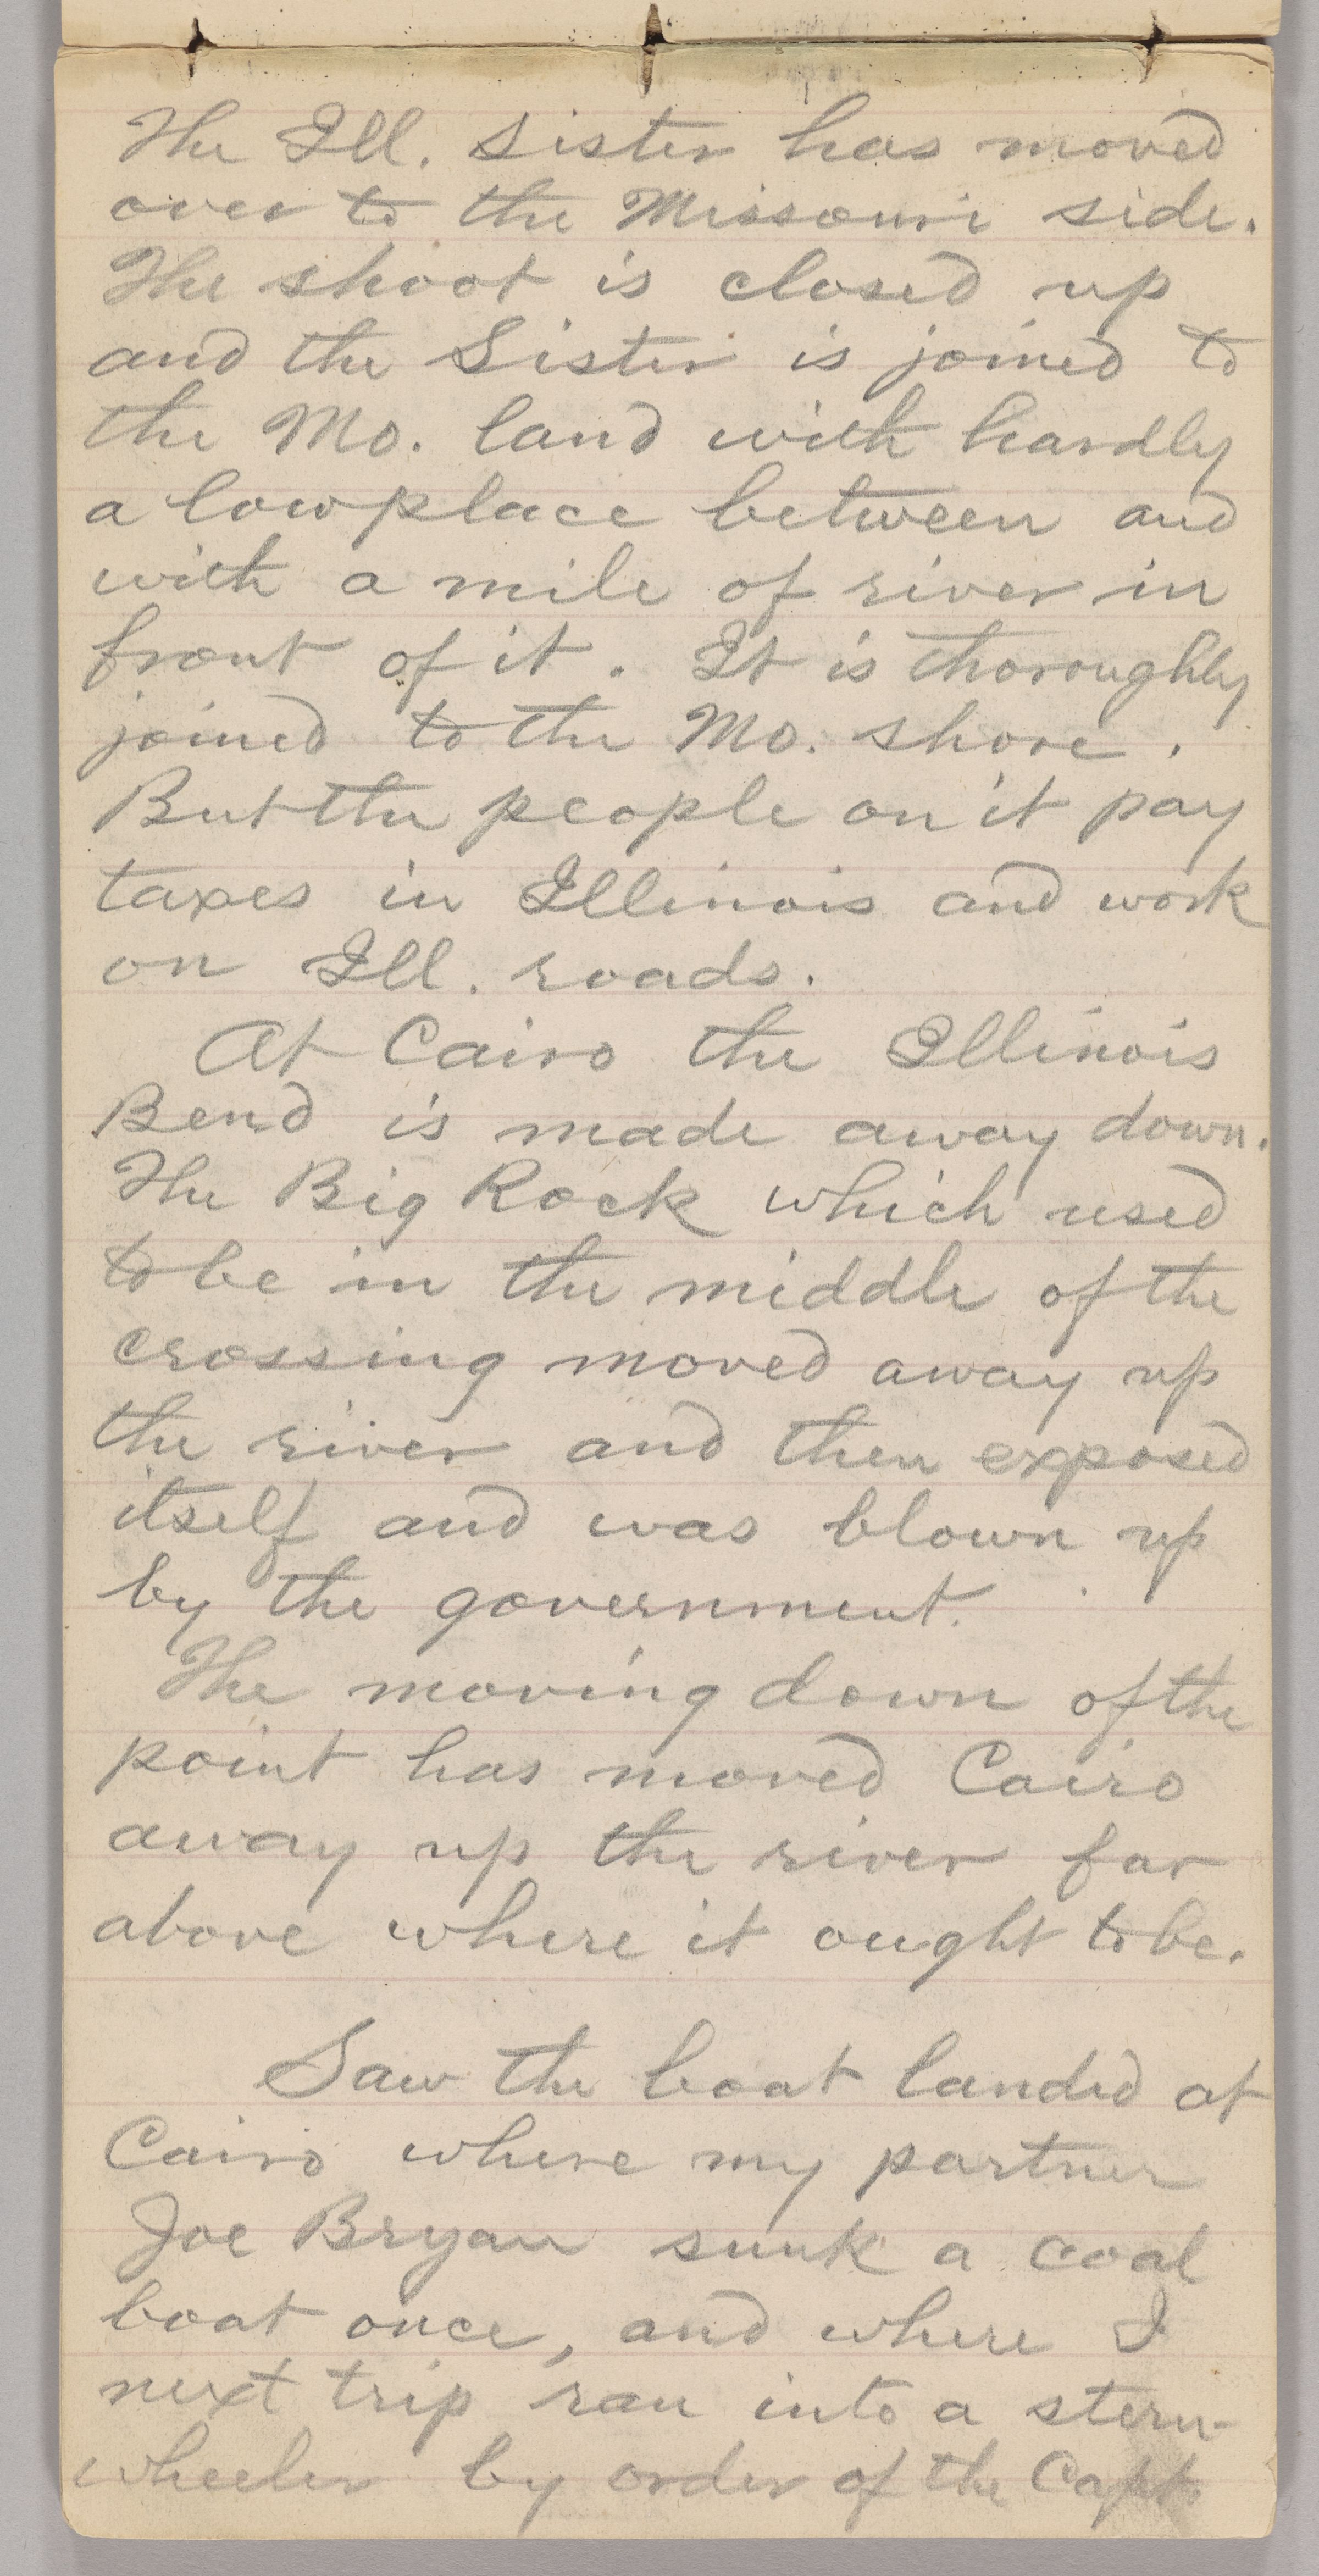 The Ill. Sister has moved
over to the Missouri side.
The shoot is closed up
and the Sister is joined to
the Mo. land with hardly
a low place between and
with a mile of river in
front of it. It is thoroughly
joined to the Mo. shore.
But the people on it pay
taxes in Illinois and work
on Ill. roads.
At Cairo the Illinois
Bend is made away down.
The Big Rock which used
to be in the middle of the
crossing moved away up
the river and then exposed
itself and was blown up
by the government.
The moving down of the
point has moved Cairo
away up the river far
above where it ought to be.
Saw the boat landed at
Cairo where my partner
Joe Bryan sunk a coal
boat once, and where I
next trip ran into a stern-
wheeler by order of the Capt.